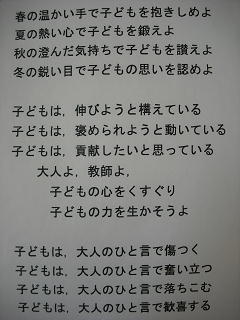 春の温かい手で子どもを抱きしめよ
夏の熱い心で子どもを鍛えよ
秋の澄んだ気持ちで子どもを讃えよ
冬の鋭い目で子どもの思いを認めよ
子どもは，伸びようと構えている
子どもは，褒められようと動いている
子どもは，貢献したいと思っている
大人よ，教師よ，
子どもの心をくすぐり
子どもの力を生かそうよ
子どもは，大人のひと言で傷つく
子どもは，大人のひと言で奮い立つ
子どもは，大人のひと言で落ちこむ
子どもは，大人のひと言で歓喜する